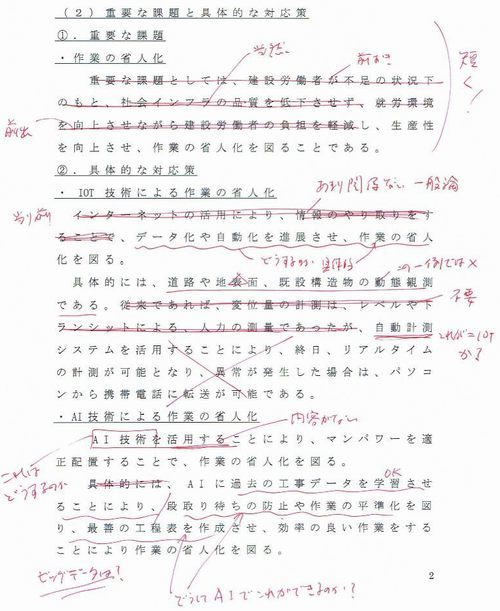 (2) 重要な課題と具体的な対応策
①．重要な課題
・作業の省人化
当然
前おき
短く！
重要な課題としては、建設労働者が不足の状況下
のもと、社会インフラの品質を低下させず、就労環境
前出
を向上させながら建設労働者の負担を軽減し、生産性
を向上させ、作業の省人化を図ることである。
②．具体的な対応策
・IOT技術による作業の省人化
あまり関係ない 一般論
当り前
インターネットの活用により、情報のやり取りをす
ることで、データ化や自動化を進展させ、作業の省人
化を図る。
どうするか 具体的
具体的には、道路や地表面、既設構造物の動態観測
この一例では×
である。従来であれば、変位量の計測は、レベルやト
不要
ランシットによる、人力の測量であったが、自動計測
これが=IOTか？
システムを活用することにより、終日、リアルタイム
の計測が可能となり、異常が発生した場合は、パソコ
ンから携帯電話に転送が可能である。
・AI技術による作業の省人化
内容がない
AI技術を活用することにより、マンパワーを適
正配置することで、作業の省人化を図る。
これは
どうするのか
OK
具体的には、AIに過去の工事データを学習させ
ることにより、段取り待ちの防止や作業の平準化を図
り、最善の工程表を作成させ、効率の良い作業をする
ことにより作業の省人化を図る。
ビッグデータは？
どうしてAIでこれができるのか？
2